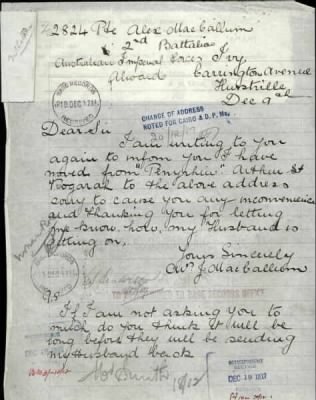 2824 Pte Alex MacCallum
2nd Battalion
Australian Imperial Force Ivy
Abroad Carrington Avenue
Hurstville
Dec 9th
CHANGE OF ADDRESS
NOTED FOR CAIRO & D.P.
20/12/17
Dear Sir
I am writing to you
again to inform you I have
moved from "Penyhhir" Arthur St
Kogarah to the above address
sorry to cause you any inconvenience
and thanking you for letting
me know how my Husband is
getting on.
Yours Sincerely
J. MacCallum
P.S
If I am not asking you to
much do you think it will be
long before they will be sending
my Husband back
18/12
DEC 19 1917